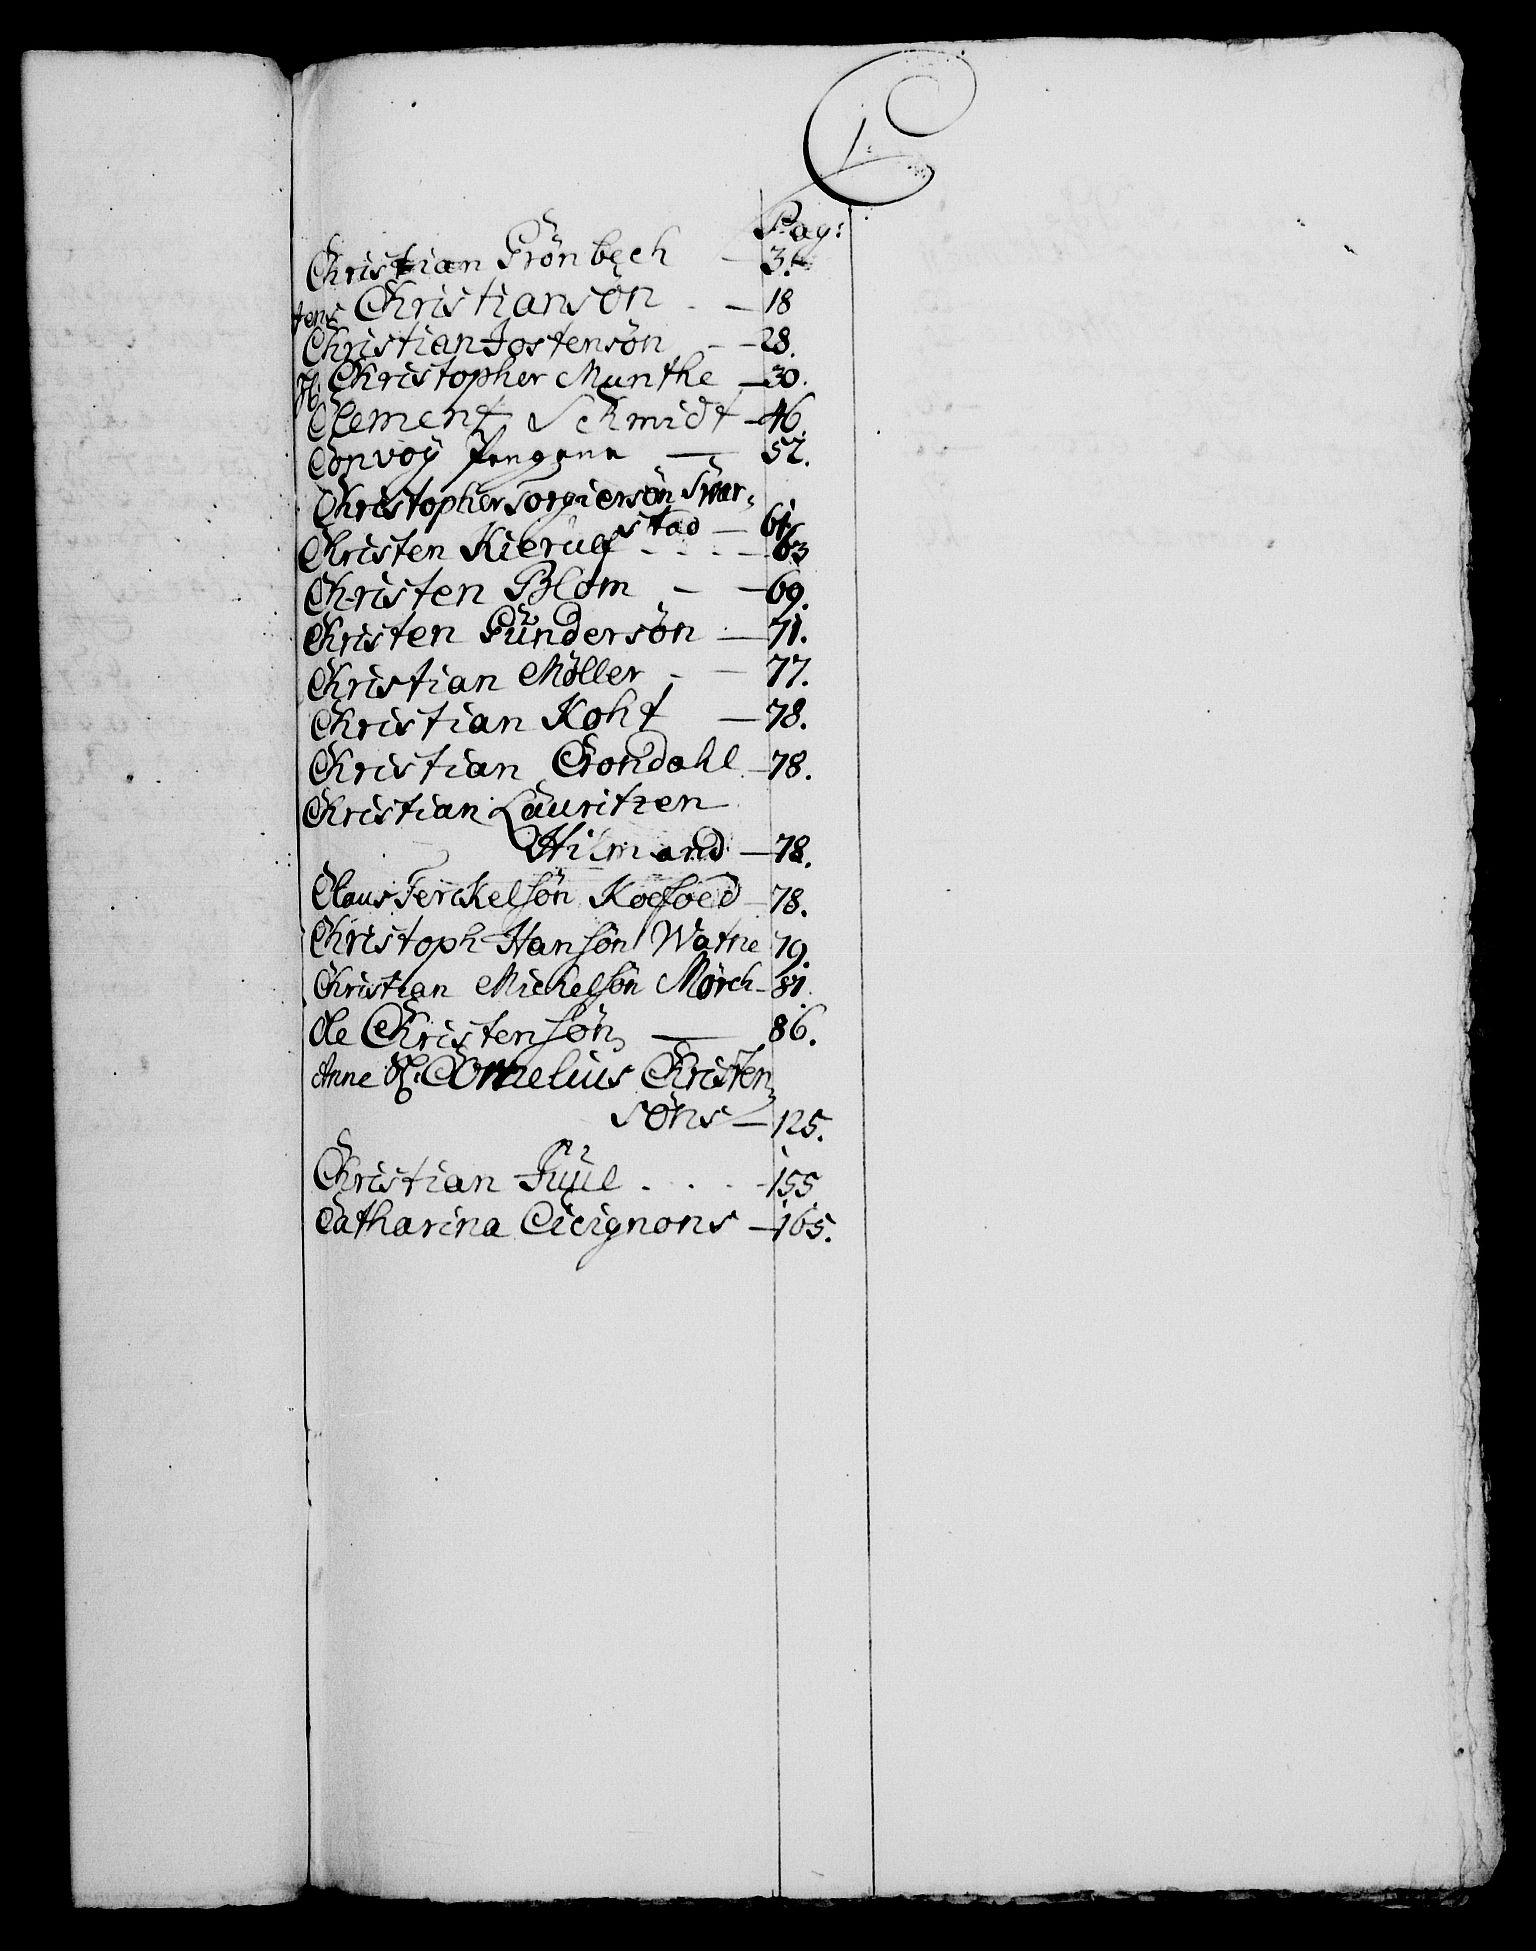 C
Pag:
Christian Grönbech — 3.
Jens Christiansön - — 18
Christian Jostensön - — 28.
H. Christopher Munthe — 30.
Clement Schmidt — 46.
Convoy Pengene — 52.
Christopher Torgiersön Svar-
stad — 61.
Christen Kierulf - - - — 63
Christen Blom - — 69.
Christen Gündersön — 71.
Christian Möller - — 77.
Christian Koht — 78.
Christian Grondahl — 78.
Christian Lauritzen
Hilmand — 78.
Claus Terckelsön Koefoed — 78.
Christoph Hansön Watne 79.
Christian Michelsön Mörch — 81.
Ole Christensön — 86.
Anne Sl. Cornelius Christen
söns — 125.
Christian Juul - - - - 155
Catharina Cicignons — 165.